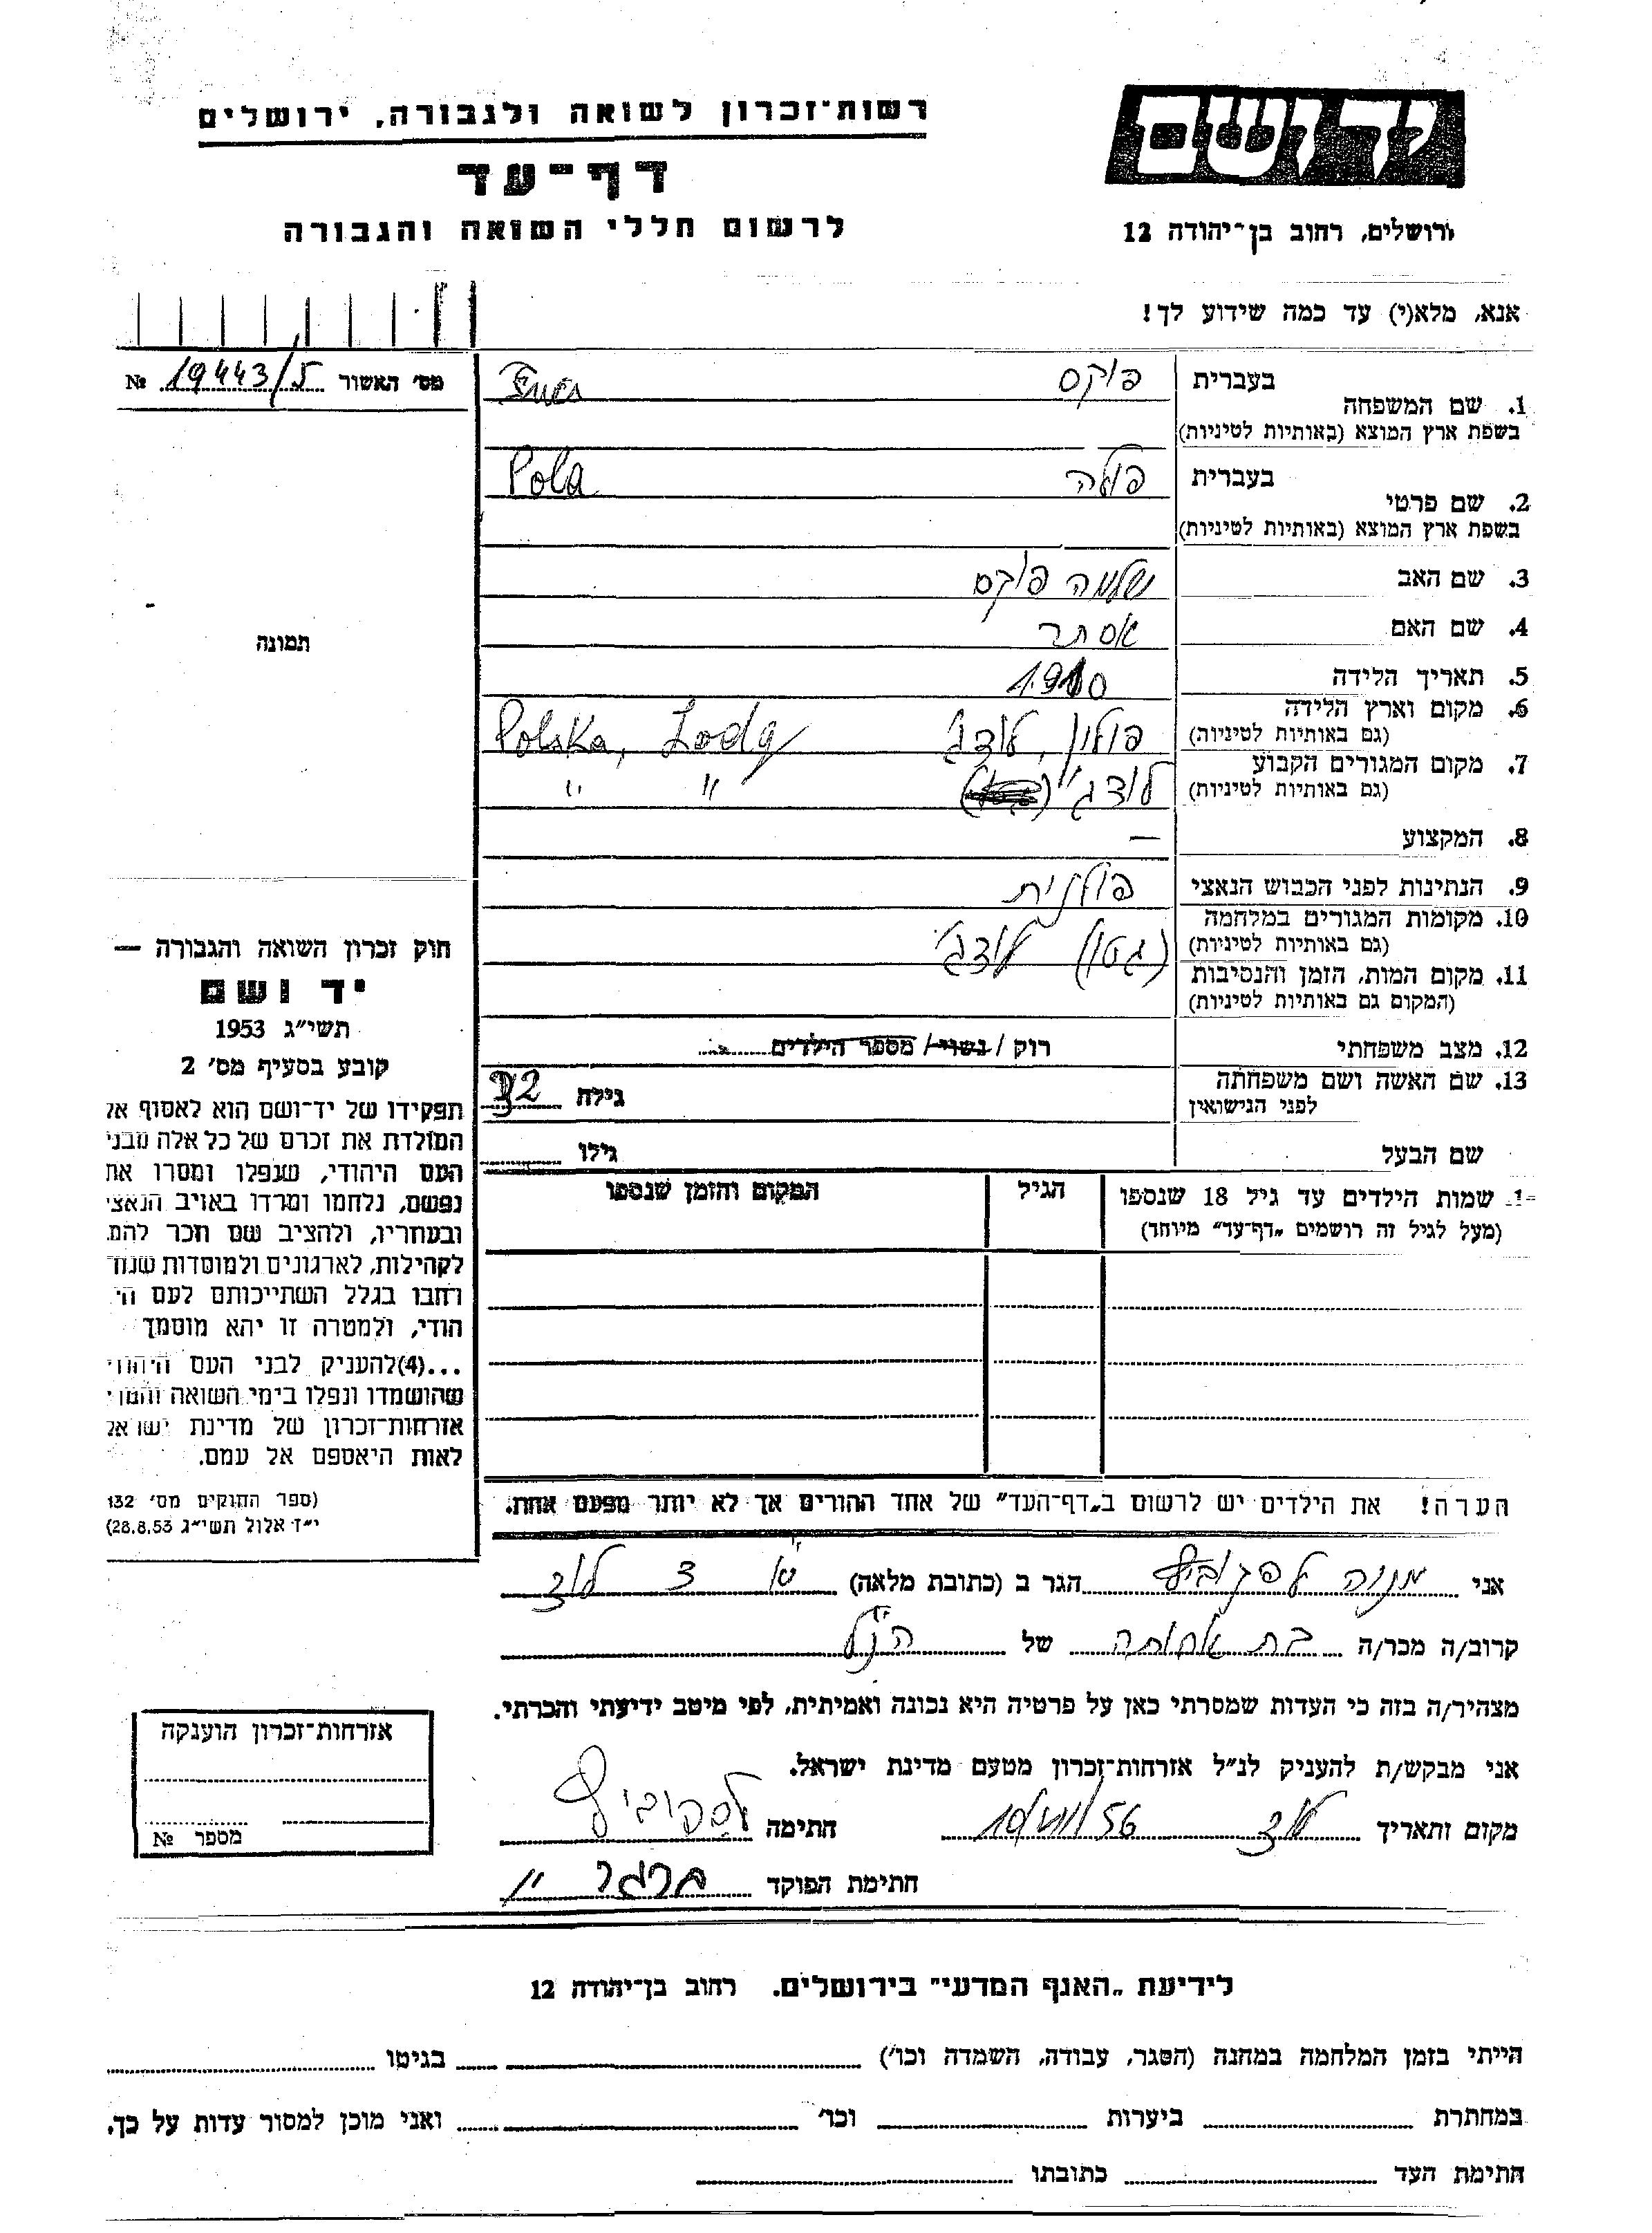 רשות־זכרון לשואה ולגבורה, ירושלים
יד ושם
דף־עד
לרשום חללי השואה והגבורה
ירושלים, רחוב בן־יהודה 12
אנא, מלא(י) עד כמה שידוע לך!
מס׳ האשור 19443/5 №
בעברית פוקס
1. שם המשפחה
בשפת ארץ המוצא (באותיות לטיניות)
בעברית פולה Pola
2. שם פרטי
בשפת ארץ המוצא (באותיות לטיניות)
3. שם האב שלמה פוקס
4. שם האם אסתר
5. תאריך הלידה 1910
6. מקום וארץ הלידה פולין, לודג׳ Polska, Lodz
(גם באותיות לטיניות)
7. מקום המגורים הקבוע לודג׳ " "
(גם באותיות לטיניות)
8. המקצוע —
9. הנתינות לפני הכבוש הנאצי פולנית
10. מקומות המגורים במלחמה
(גם באותיות לטיניות) (גטו) לודג׳
11. מקום המות, הזמן והנסיבות
(המקום גם באותיות לטיניות)
12. מצב משפחתי רוק / נשוי / מספר הילדים
13. שם האשה ושם משפחתה
לפני הנישואין גילה 32
שם הבעל גילו
שמות הילדים עד גיל 18 שנספו הגיל המקום והזמן שנספו
(מעל לגיל זה רושמים „דף־עד״ מיוחד)
הערה! את הילדים יש לרשום ב„דף־העד״ של אחד ההורים אך לא יותר מפעם אחת.
תמונה
חוק זכרון השואה והגבורה —
יד ושם
תשי״ג 1953
קובע בסעיף מס׳ 2
תפקידו של יד־ושם הוא לאסוף אל
המולדת את זכרם של כל אלה מבני
העם היהודי, שנפלו ומסרו את
נפשם, נלחמו ומרדו באויב הנאצי
ובעוזריו, ולהציב שם וזכר להם,
לקהילות, לארגונים ולמוסדות שנח־
רבו בגלל השתייכותם לעם הי־
הודי, ולמטרה זו יהא מוסמך
...(4) להעניק לבני העם היהודי
שהושמדו ונפלו בימי השואה והמרי
אזרחות־זכרון של מדינת ישראל
לאות היאספם אל עמם.
(ספר החוקים מס׳ 132
י״ז אלול תשי״ג 28.8.53)
אני הגר ב (כתובת מלאה) 3 לוד
קרוב/ה מכר/ה בת אחותה של הנ״ל
מצהיר/ה בזה כי העדות שמסרתי כאן על פרטיה היא נכונה ואמיתית, לפי מיטב ידיעתי והכרתי.
אני מבקש/ת להעניק לנ״ל אזרחות־זכרון מטעם מדינת ישראל.
מקום ותאריך לוד 10/VIII/56 חתימה
חתימת הפוקד
אזרחות־זכרון הוענקה
מספר №
לידיעת „האגף המדעי״ בירושלים. רחוב בן־יהודה 12
הייתי בזמן המלחמה במחנה (הסגר, עבודה, השמדה וכו׳) בגיטו
במחתרת ביערות וכו׳ ואני מוכן למסור עדות על כך.
חתימת העד כתובתו